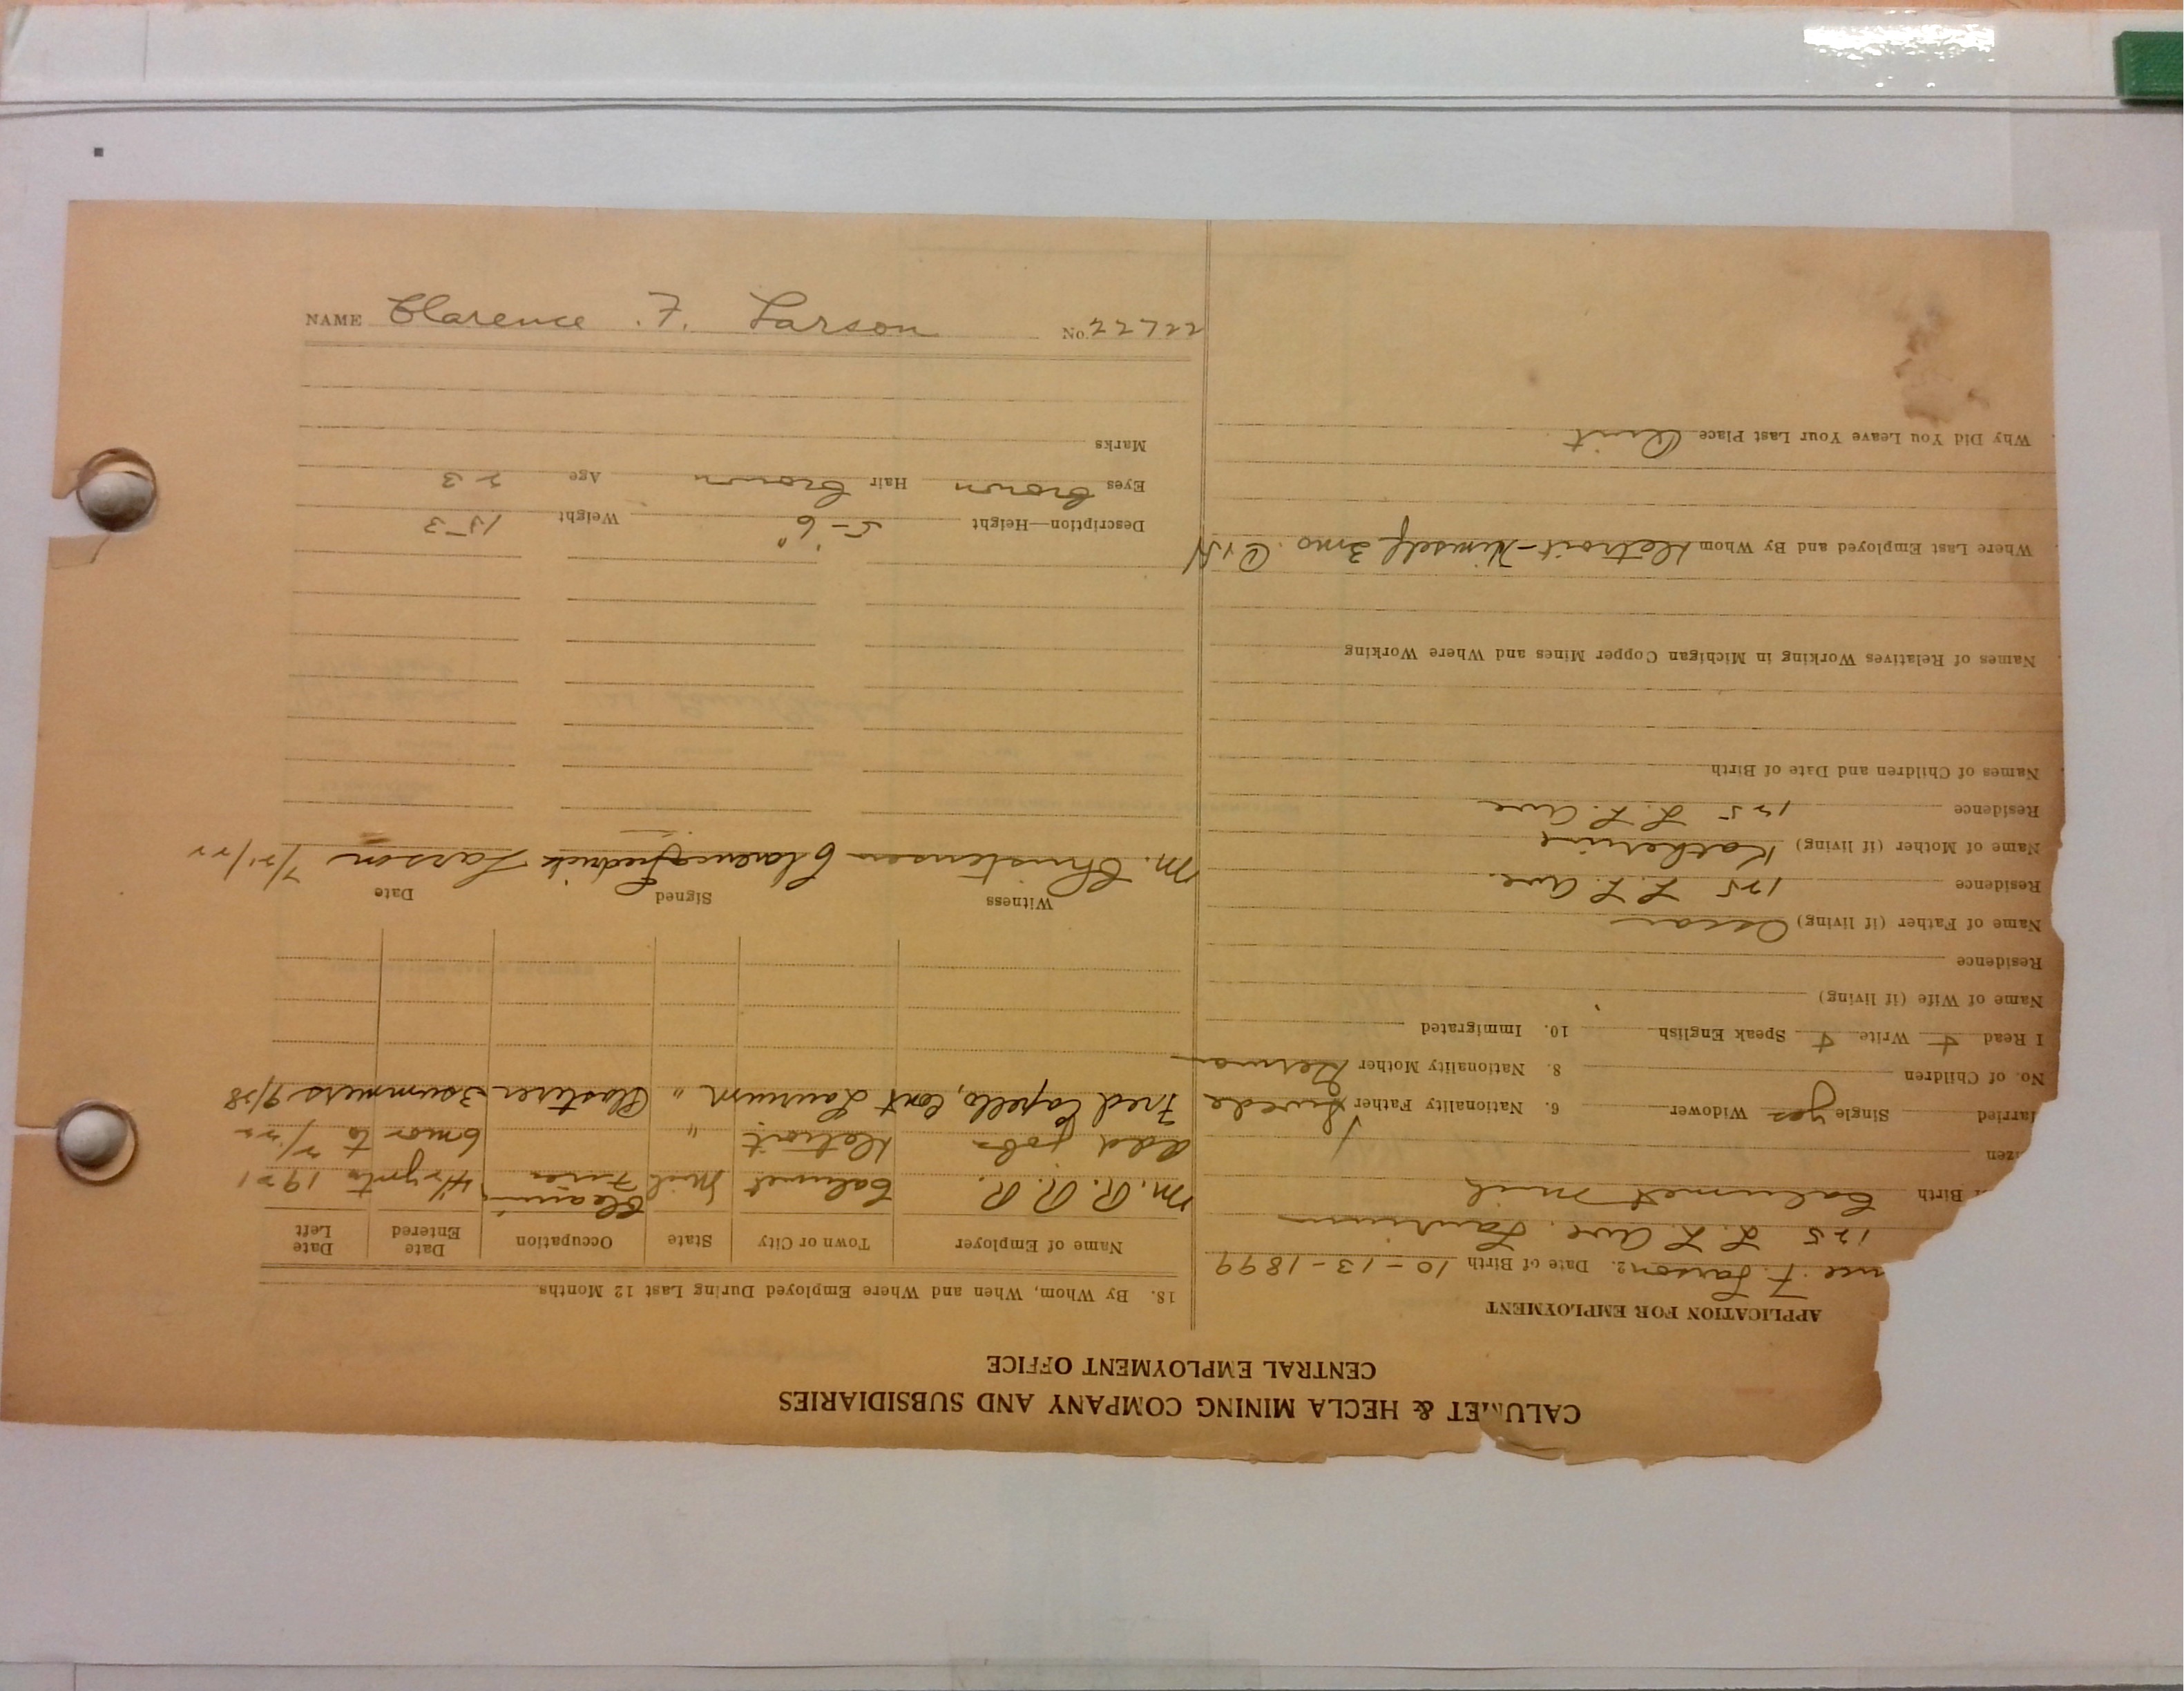 CALUMET & HECLA MINING COMPANY AND SUBSIDIARIES
CENTRAL EMPLOYMENT OFFICE
APPLICATION FOR EMPLOYMENT
nce F. Larson 2. Date of Birth 10-13-1899
125 L. L. Ave. Laurium
Birth Calumet Mich
izen
Married Single yes Widower 6. Nationality Father Swede
No. of Children 8. Nationality Mother German
I Read + Write + Speak English 10. Immigrated
Name of Wife (if living)
Residence
Name of Father (if living) Oscar
Residence 125 L. L. Ave.
Name of Mother (if living) Katherine
Residence 125 L. L. Ave
Names of Children and Date of Birth
Names of Relatives Working in Michigan Copper Mines and Where Working
Where Last Employed and By Whom Detroit-Himself 3 mo.
Why Did You Leave Your Last Place Quit
18. By Whom, When and Where Employed During Last 12 Months
Name of Employer Town or City State Occupation Date Entered Date Left
M. R. R. R. Calumet Mich 1921
Odd jobs Detroit " 6 mos to
Fred Capello, Cont Laurium " Plasterer 3 summers
Witness Signed Date
M. Christensen Clarence Fredrick Larson 7/21/22
Description—Height 5-6" Weight 153
Eyes Brown Hair Brown Age 23
Marks
NAME Clarence F. Larson No. 22722